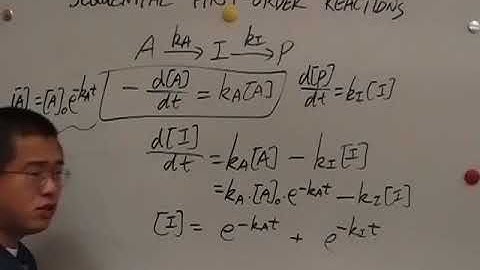 SEQUENTIAL FIRST ORDER REACTIONS
A →(kA) I →(kI) P
[A]=[A]₀e^-kAt   - d[A]/dt = kA[A]   d[P]/dt = kI[I]
d[I]/dt = kA[A] - kI[I]
= kA·[A]₀·e^-kAt - kI[I]
[I] = e^-kAt + e^-kIt